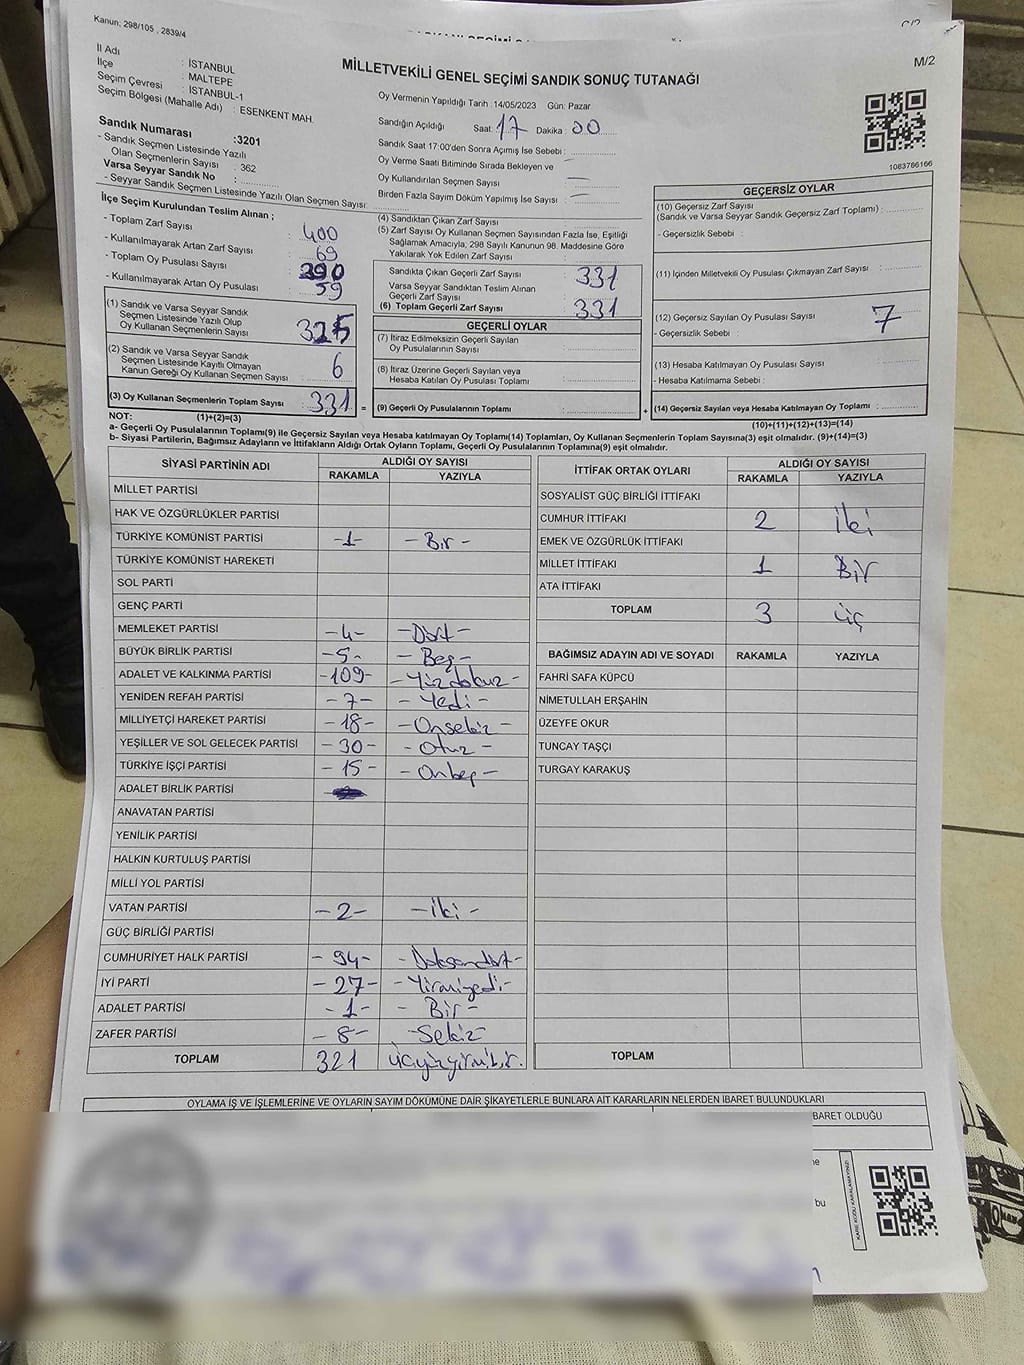 Kanun; 298/105 , 2839/4
M/2
MİLLETVEKİLİ GENEL SEÇİMİ SANDIK SONUÇ TUTANAĞI
İl Adı : İSTANBUL
İlçe : MALTEPE
Seçim Çevresi : İSTANBUL-1
Seçim Bölgesi (Mahalle Adı) : ESENKENT MAH.
Sandık Numarası :3201
- Sandık Seçmen Listesinde Yazılı
Olan Seçmenlerin Sayısı : 362
Varsa Seyyar Sandık No :
- Seyyar Sandık Seçmen Listesinde Yazılı Olan Seçmen Sayısı:
İlçe Seçim Kurulundan Teslim Alınan ;
- Toplam Zarf Sayısı : 400
- Kullanılmayarak Artan Zarf Sayısı : 69
- Toplam Oy Pusulası Sayısı : 390
- Kullanılmayarak Artan Oy Pusulası : 59
(1) Sandık ve Varsa Seyyar Sandık
Seçmen Listesinde Yazılı Olup
Oy Kullanan Seçmenlerin Sayısı : 325
(2) Sandık ve Varsa Seyyar Sandık
Seçmen Listesinde Kayıtlı Olmayan
Kanun Gereği Oy Kullanan Seçmen Sayısı : 6
(3) Oy Kullanan Seçmenlerin Toplam Sayısı : 331 =
Oy Vermenin Yapıldığı Tarih : 14/05/2023 Gün: Pazar
Sandığın Açıldığı Saat: 17 Dakika : 00
Sandık Saat 17:00'den Sonra Açımış İse Sebebi :
Oy Verme Saati Bitiminde Sırada Bekleyen ve
Oy Kullandırılan Seçmen Sayısı : —
Birden Fazla Sayım Döküm Yapılmış İse Sayısı : —
(4) Sandıktan Çıkan Zarf Sayısı :
(5) Zarf Sayısı Oy Kullanan Seçmen Sayısından Fazla İse, Eşitliği
Sağlamak Amacıyla, 298 Sayılı Kanunun 98. Maddesine Göre
Yakılarak Yok Edilen Zarf Sayısı :
Sandıkta Çıkan Geçerli Zarf Sayısı : 331
Varsa Seyyar Sandıktan Teslim Alınan
Geçerli Zarf Sayısı :
(6) Toplam Geçerli Zarf Sayısı : 331
GEÇERLİ OYLAR
(7) İtiraz Edilmeksizin Geçerli Sayılan
Oy Pusulalarının Sayısı :
(8) İtiraz Üzerine Geçerli Sayılan veya
Hesaba Katılan Oy Pusulası Toplamı :
(9) Geçerli Oy Pusulalarının Toplamı : +
1083786166
GEÇERSİZ OYLAR
(10) Geçersiz Zarf Sayısı
(Sandık ve Varsa Seyyar Sandık Geçersiz Zarf Toplamı) :
- Geçersizlik Sebebi :
(11) İçinden Milletvekili Oy Pusulası Çıkmayan Zarf Sayısı :
(12) Geçersiz Sayılan Oy Pusulası Sayısı : 7
- Geçersizlik Sebebi :
(13) Hesaba Katılmayan Oy Pusulası Sayısı :
- Hesaba Katılmama Sebebi :
(14) Geçersiz Sayılan veya Hesaba Katılmayan Oy Toplamı :
NOT: (1)+(2)=(3) (10)+(11)+(12)+(13)=(14)
a- Geçerli Oy Pusulalarının Toplamı(9) ile Geçersiz Sayılan veya Hesaba katılmayan Oy Toplamı(14) Toplamları, Oy Kullanan Seçmenlerin Toplam Sayısına(3) eşit olmalıdır. (9)+(14)=(3)
b- Siyasi Partilerin, Bağımsız Adayların ve İttifakların Aldığı Ortak Oyların Toplamı, Geçerli Oy Pusulalarının Toplamına(9) eşit olmalıdır.
SİYASİ PARTİNİN ADI ALDIĞI OY SAYISI
RAKAMLA YAZIYLA
MİLLET PARTİSİ
HAK VE ÖZGÜRLÜKLER PARTİSİ
TÜRKİYE KOMÜNİST PARTİSİ -1- - Bir -
TÜRKİYE KOMÜNİST HAREKETİ
SOL PARTİ
GENÇ PARTİ
MEMLEKET PARTİSİ -4- -Dört-
BÜYÜK BİRLİK PARTİSİ -5- - Beş-
ADALET VE KALKINMA PARTİSİ -109- - Yüzdokuz -
YENİDEN REFAH PARTİSİ -7- - Yedi -
MİLLİYETÇİ HAREKET PARTİSİ -18- -Onsekiz -
YEŞİLLER VE SOL GELECEK PARTİSİ -30- - Otuz -
TÜRKİYE İŞÇİ PARTİSİ -15- -Onbeş-
ADALET BİRLİK PARTİSİ
ANAVATAN PARTİSİ
YENİLİK PARTİSİ
HALKIN KURTULUŞ PARTİSİ
MİLLİ YOL PARTİSİ
VATAN PARTİSİ -2- -İki-
GÜÇ BİRLİĞİ PARTİSİ
CUMHURİYET HALK PARTİSİ - 94- -Doksandört-
İYİ PARTİ -27- -Yirmiyedi-
ADALET PARTİSİ -1- - Bir -
ZAFER PARTİSİ -8- -Sekiz-
TOPLAM 321 üçyüzyirmibir.
İTTİFAK ORTAK OYLARI ALDIĞI OY SAYISI
RAKAMLA YAZIYLA
SOSYALİST GÜÇ BİRLİĞİ İTTİFAKI
CUMHUR İTTİFAKI 2 iki
EMEK VE ÖZGÜRLÜK İTTİFAKI
MİLLET İTTİFAKI 1 Bir
ATA İTTİFAKI
TOPLAM 3 üç
BAĞIMSIZ ADAYIN ADI VE SOYADI RAKAMLA YAZIYLA
FAHRİ SAFA KÜPCÜ
NİMETULLAH ERŞAHİN
ÜZEYFE OKUR
TUNCAY TAŞÇI
TURGAY KARAKUŞ
TOPLAM
OYLAMA İŞ VE İŞLEMLERİNE VE OYLARIN SAYIM DÖKÜMÜNE DAİR ŞİKAYETLERLE BUNLARA AİT KARARLARIN NELERDEN İBARET BULUNDUKLARI
İBARET OLDUĞU
bu
KARE KODU KARALAMAYINIZ!